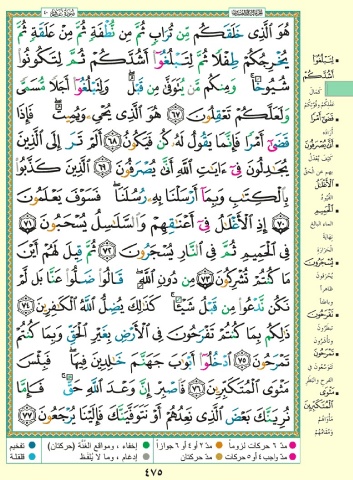 هُوَ ٱلَّذِى خَلَقَكُم مِّن تُرَابٍ ثُمَّ مِن نُّطْفَةٍ ثُمَّ مِنْ عَلَقَةٍ ثُمَّ
يُخْرِجُكُمْ طِفْلًا ثُمَّ لِتَبْلُغُوٓا۟ أَشُدَّكُمْ ثُمَّ لِتَكُونُوا۟
شُيُوخًا ۚ وَمِنكُم مَّن يُتَوَفَّىٰ مِن قَبْلُ ۖ وَلِتَبْلُغُوٓا۟ أَجَلًا مُّسَمًّى
وَلَعَلَّكُمْ تَعْقِلُونَ ٦٧ هُوَ ٱلَّذِى يُحْىِۦ وَيُمِيتُ ۖ فَإِذَا
قَضَىٰٓ أَمْرًا فَإِنَّمَا يَقُولُ لَهُۥ كُن فَيَكُونُ ٦٨ أَلَمْ تَرَ إِلَى ٱلَّذِينَ
يُجَٰدِلُونَ فِىٓ ءَايَٰتِ ٱللَّهِ أَنَّىٰ يُصْرَفُونَ ٦٩ ٱلَّذِينَ كَذَّبُوا۟
بِٱلْكِتَٰبِ وَبِمَآ أَرْسَلْنَا بِهِۦ رُسُلَنَا ۖ فَسَوْفَ يَعْلَمُونَ
٧٠ إِذِ ٱلْأَغْلَٰلُ فِىٓ أَعْنَٰقِهِمْ وَٱلسَّلَٰسِلُ يُسْحَبُونَ ٧١
فِى ٱلْحَمِيمِ ثُمَّ فِى ٱلنَّارِ يُسْجَرُونَ ٧٢ ثُمَّ قِيلَ لَهُمْ أَيْنَ
مَا كُنتُمْ تُشْرِكُونَ ٧٣ مِن دُونِ ٱللَّهِ ۖ قَالُوا۟ ضَلُّوا۟ عَنَّا بَل لَّمْ
نَكُن نَّدْعُوا۟ مِن قَبْلُ شَيْـًٔا ۚ كَذَٰلِكَ يُضِلُّ ٱللَّهُ ٱلْكَٰفِرِينَ ٧٤
ذَٰلِكُم بِمَا كُنتُمْ تَفْرَحُونَ فِى ٱلْأَرْضِ بِغَيْرِ ٱلْحَقِّ وَبِمَا كُنتُمْ
تَمْرَحُونَ ٧٥ ٱدْخُلُوٓا۟ أَبْوَٰبَ جَهَنَّمَ خَٰلِدِينَ فِيهَا ۖ فَبِئْسَ
مَثْوَى ٱلْمُتَكَبِّرِينَ ٧٦ فَٱصْبِرْ إِنَّ وَعْدَ ٱللَّهِ حَقٌّ ۚ فَإِمَّا
نُرِيَنَّكَ بَعْضَ ٱلَّذِى نَعِدُهُمْ أَوْ نَتَوَفَّيَنَّكَ فَإِلَيْنَا يُرْجَعُونَ ٧٧
لِتَبْلُغُوا
أَشُدَّكُمْ
قَضَى أَمْرًا
أَنَّى يُصْرَفُونَ
الْأَغْلَالُ
الْحَمِيمِ
يُسْجَرُونَ
تَفْرَحُونَ
تَمْرَحُونَ
مَثْوَى
الْمُتَكَبِّرِينَ
مدّ ٦ حركات لزوماً
مدّ ٢ أو ٤ أو ٦ جوازاً
إخفاء، ومواقع الغنّة (حركتان)
تفخيم
مدّ واجب ٤ أو ٥ حركات
مدّ حركتان
إدغام، وما لا يُلفظ
قلقلة
٤٧٥